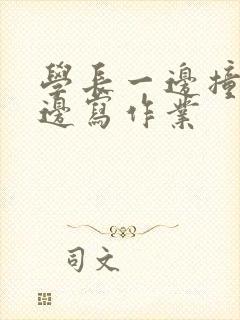 學長一邊撞
邊寫作業
司文